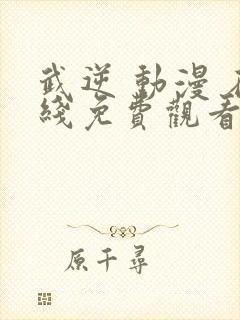 武逆 動漫
綫免費觀看
原千尋